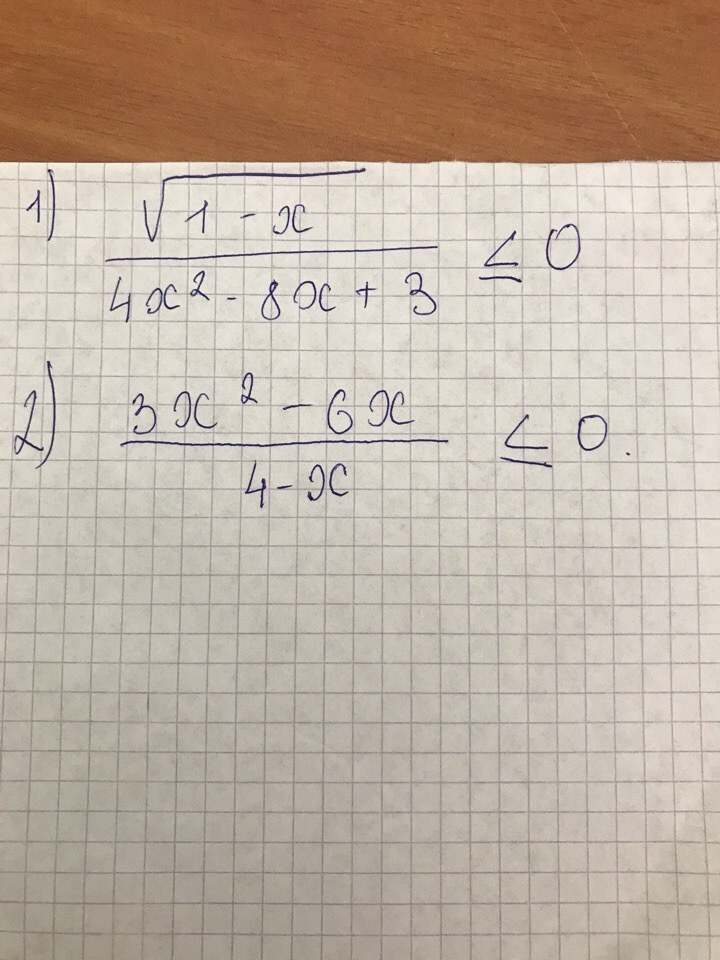 1) √(1 - x) / (4x² - 8x + 3) ≤ 0
2) (3x² - 6x) / (4 - x) ≤ 0.